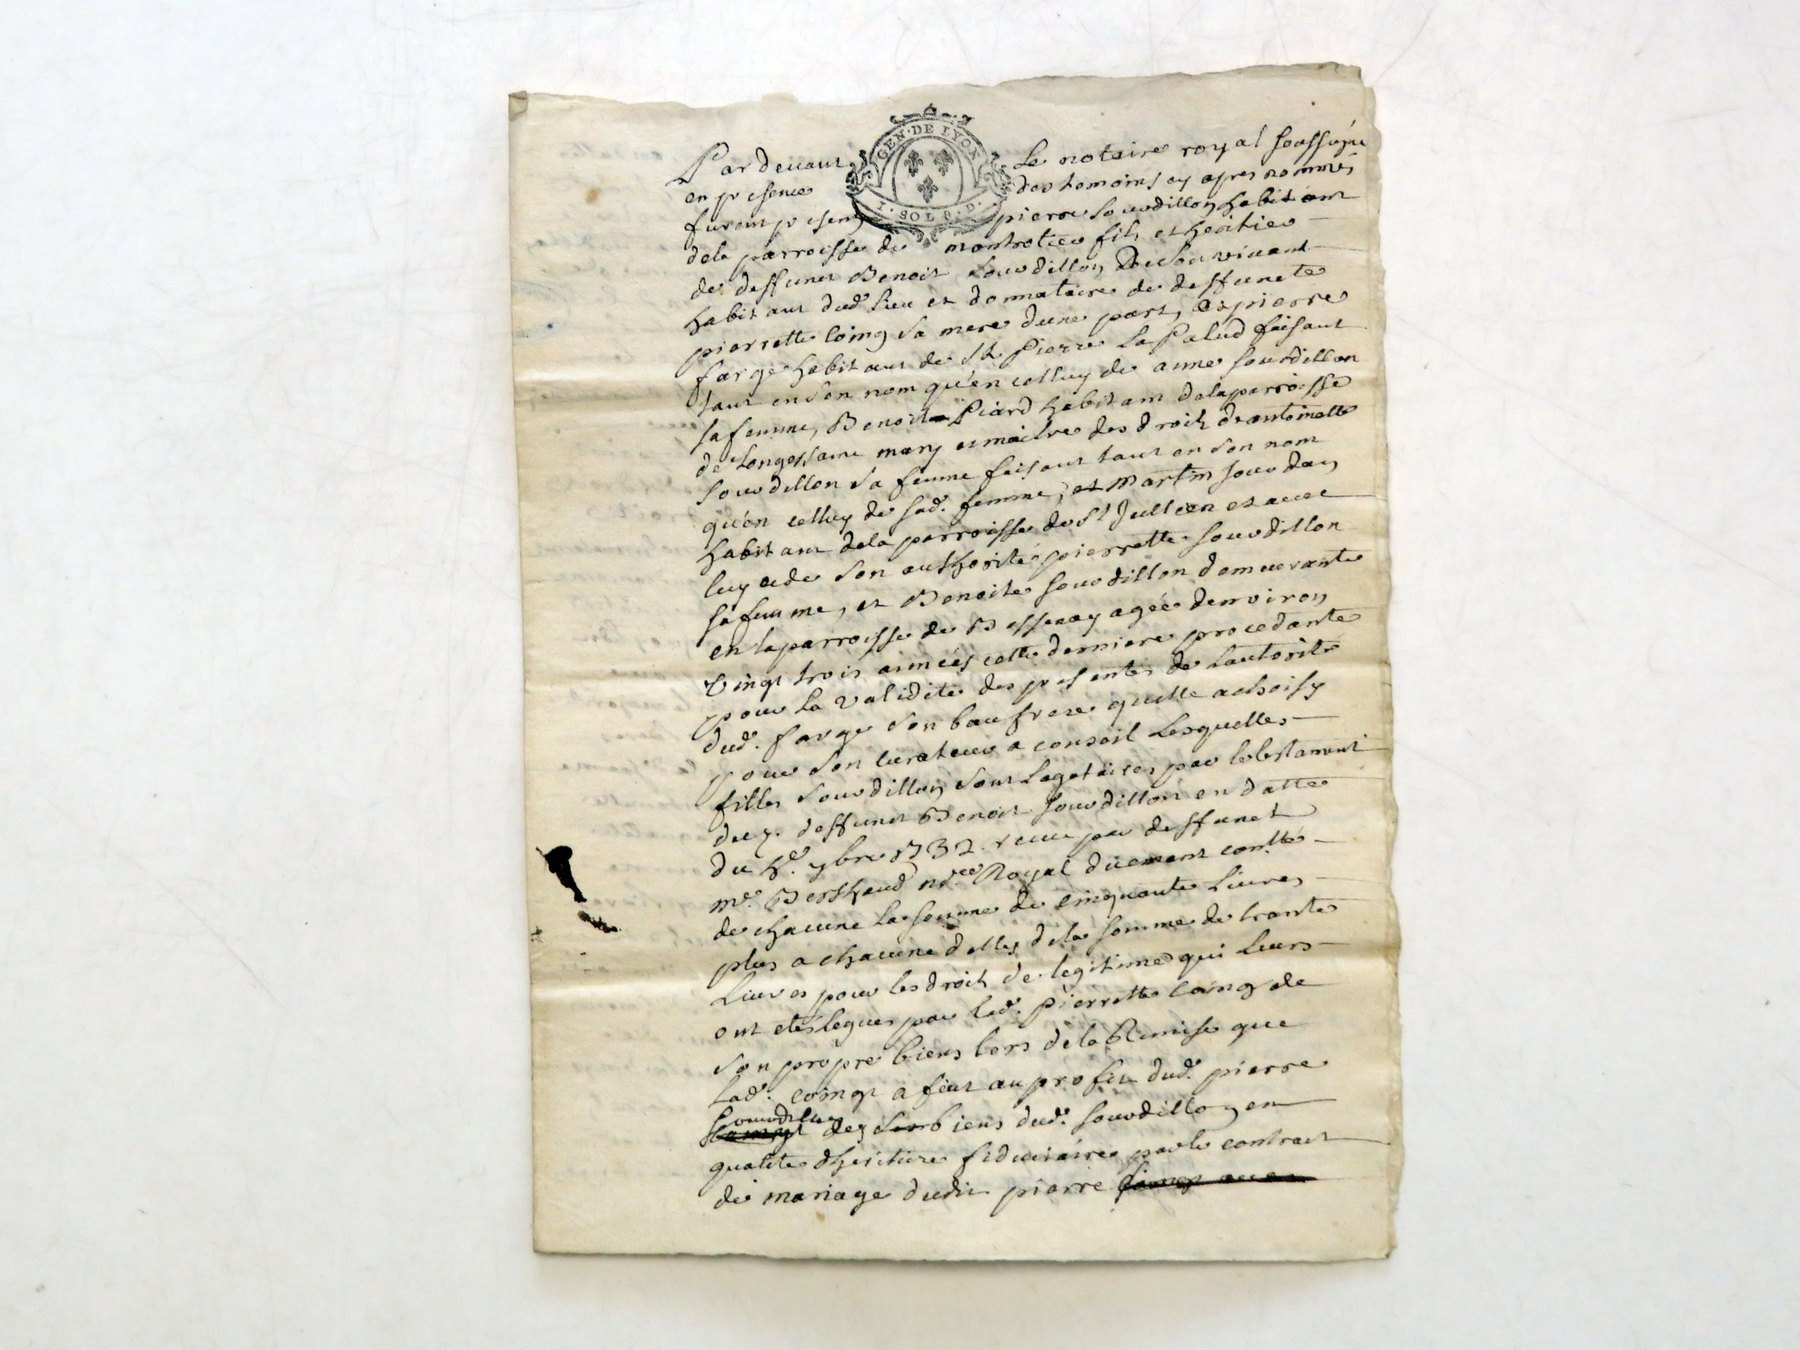 GEN · DE LYON
1 · SOL 8 · D
Pardevant Le notaire royal soussigné
en presence des temoins cy apres nommés
furent presents pierre Sourdillon habitant
dela parroisse de montrotier fils et heritier
de deffunct Benoit Sourdillon De son vivant
habitant dud. lieu et donnataire de deffuncte
pierrette loing sa mere d'une part, Et pierre
farge habitant de St Pierre La Palud faisant
tant en son nom qu'en celluy de anne sourdillon
sa femme, Benoit Piard habitant dela parroisse
de Longessaine mary et maitre des droits d'antoinette
sourdillon sa femme faisant tant en son nom
qu'en celluy de sad. femme, et martin sourdan
habitant dela parroisse de St Jullien et avec
luy et de son authorité pierrette sourdillon
sa femme, et Benoite sourdillon demeurante
en la parroisse de Bessenay agée denviron
vingt trois années cette derniere procedante
pour la validité des presentes de Lautorité
dud. farge son baufrere quelle a choisy
pour son curateur a conseil Lesquelles
filles sourdillon sont Legataires par le testament
dud. deffunct Benoit sourdillon en datte
du 7bre 1732 receu par deffunct
me. Berthaud nre Royal duement contlé
de chacune la somme de cinquante Livres
plus a chacune d'elles dela somme de trante
Livres pour les droits de legitime qui Leurs
ont etés legues par lad. pierrette loing de
son propre biens lors dela Remise que
Lad. loingt a fait au profit dud. pierre
sourdillon des biens dud. sourdillon en
qualité dheritiere fiduciaire par le contract
de mariage dudit pierre